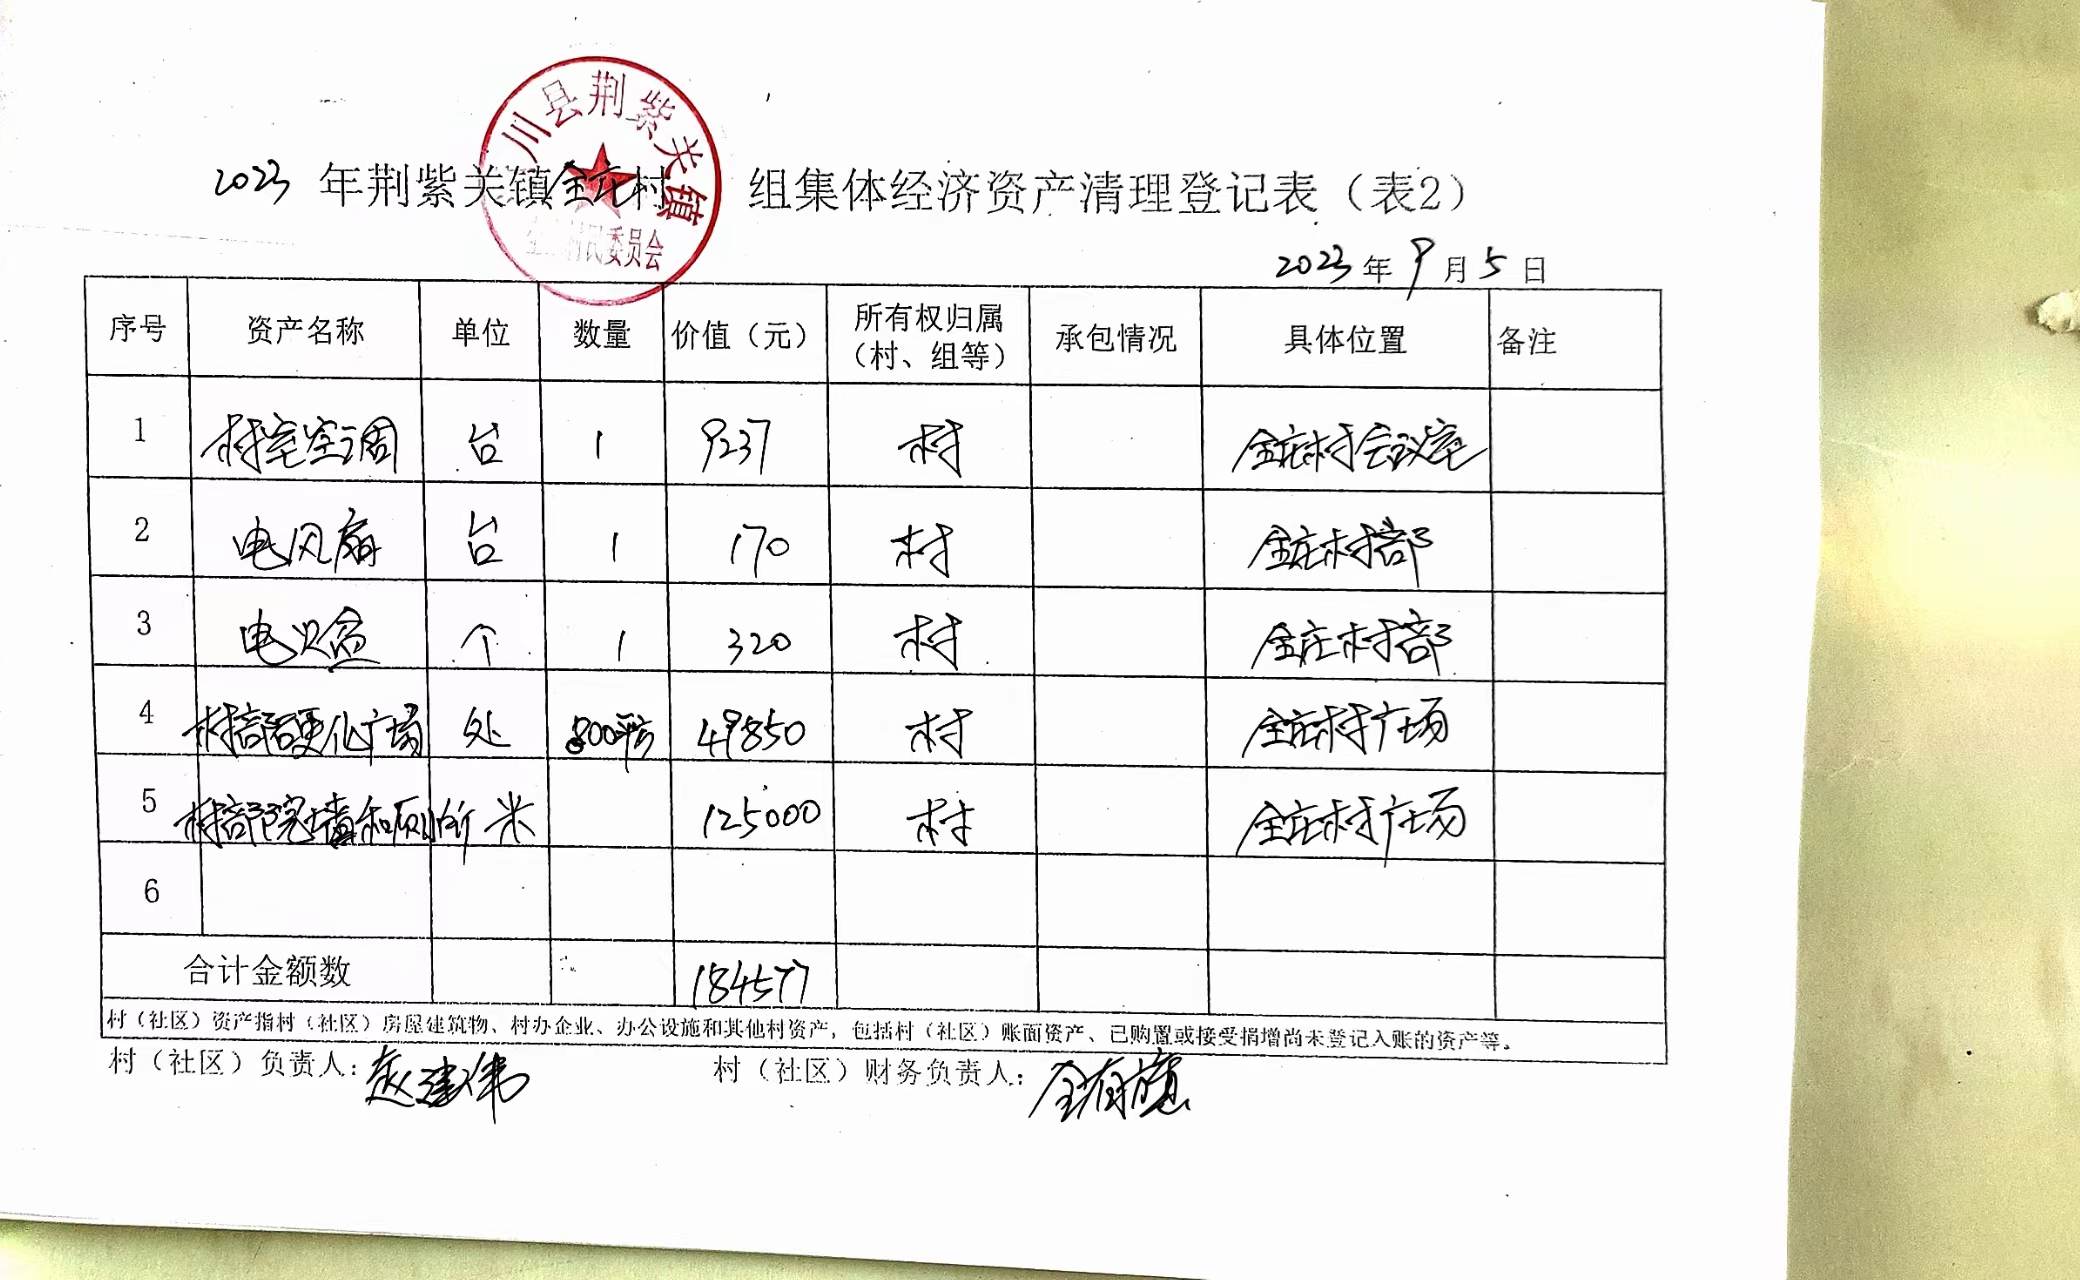 川县荆紫关镇
村民委员会
2023 年荆紫关镇全庄村 组集体经济资产清理登记表（表2）
2023 年 9 月 5 日
序号 资产名称 单位 数量 价值（元） 所有权归属（村、组等） 承包情况 具体位置 备注
1 村室空调 台 1 9237 村 全庄村会议室
2 电风扇 台 1 170 村 全庄村部
3 电火盆 个 1 320 村 全庄村部
4 村部硬化广场 处 800平方 49850 村 全庄村广场
5 村部院墙和厕所 米 125000 村 全庄村广场
6
合计金额数 184577
村（社区）资产指村（社区）房屋建筑物、村办企业、办公设施和其他村资产，包括村（社区）账面资产、已购置或接受捐增尚未登记入账的资产等。
村（社区）负责人：赵建伟 村（社区）财务负责人：全有